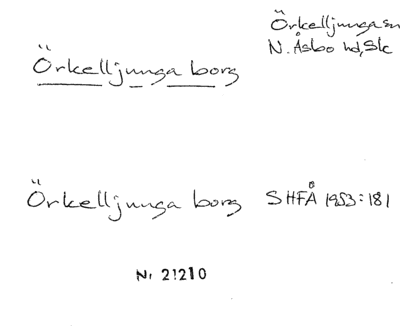 Örkelljunga sn
N. Åsbo hd, Sk
Örkelljunga borg
Örkelljunga borg SHFÅ 1953:181
Nr 21210